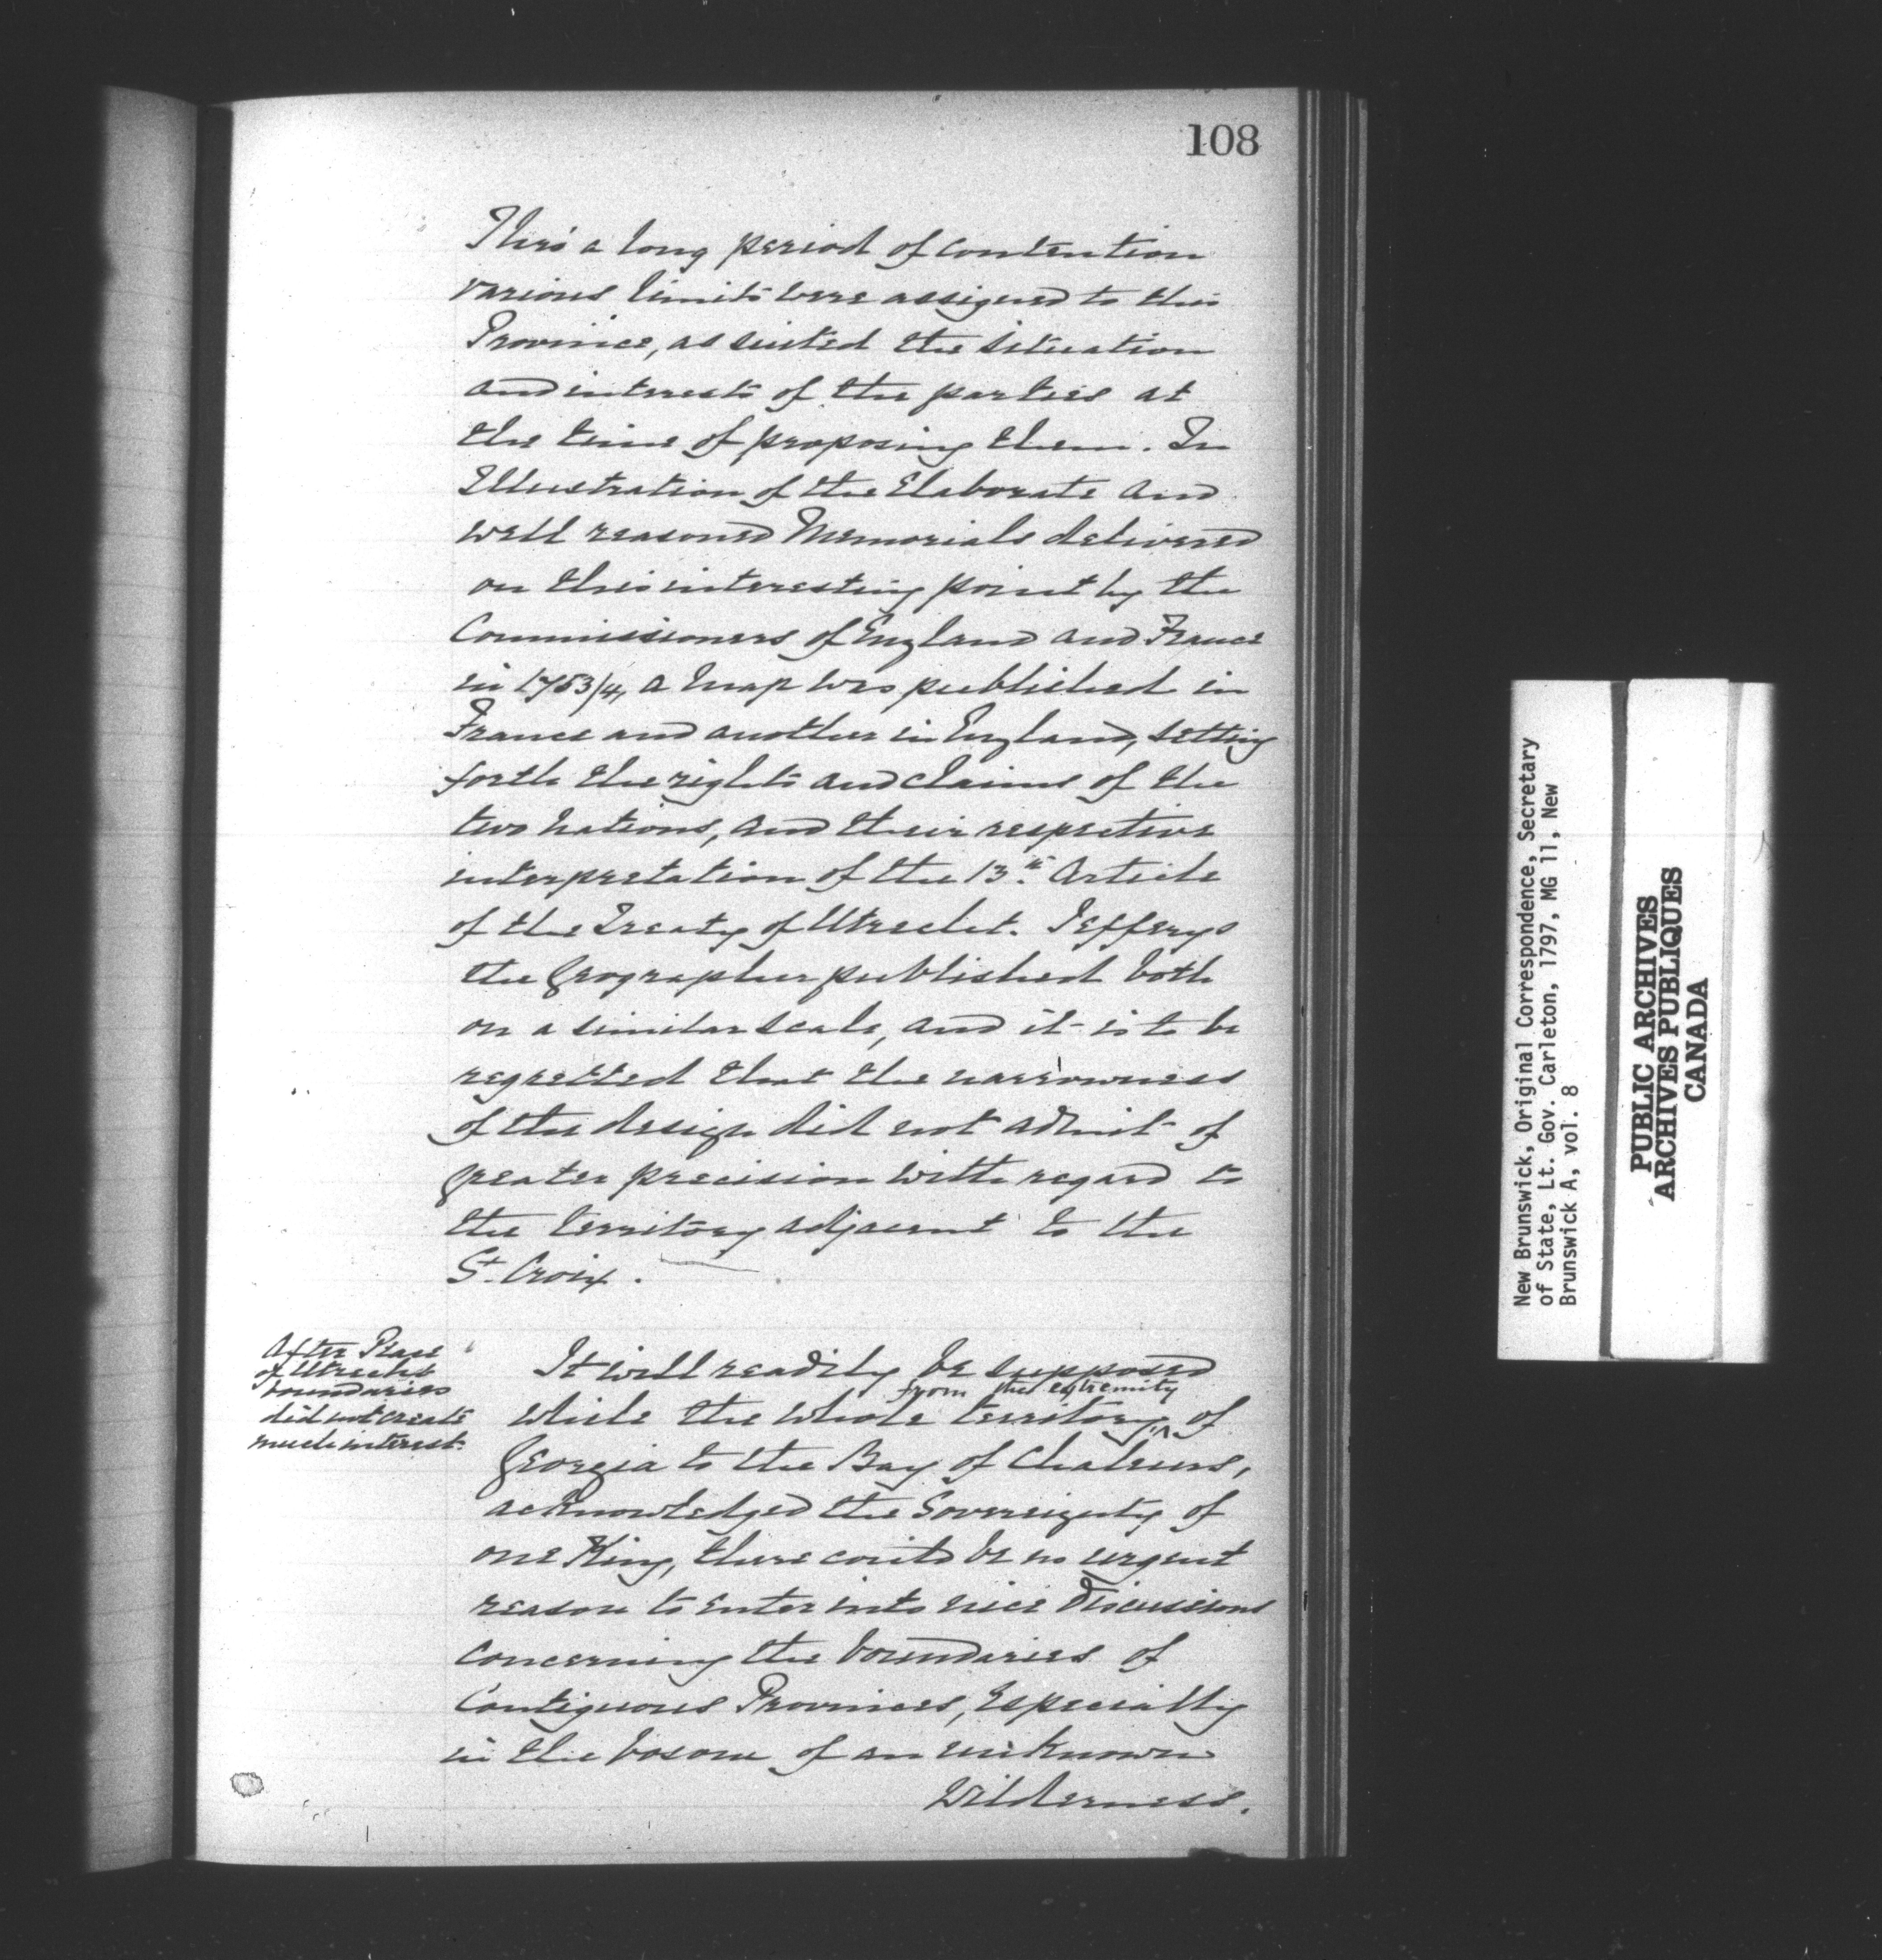 108
Thro' a long period of contention
various limits were assigned to this
Province, as suited the situation
and interests of the parties at
the time of proposing them. In
Illustration of the Elaborate and
well reasoned Memorials delivered
on this interesting point by the
Commissioners of England and France
in 1753/4, a Map was published in
France and another in England, setting
forth the rights and claims of the
two Nations, and their respective
interpretation of the 13th. Article
of the Treaty of Utrecht. Jefferys
the Geographer published both
on a similar scale, and it is to be
regretted that the narrowness
of the design did not admit of
greater precision with regard to
the territory adjacent to the
St. Croix.
After Peace
of Utrecht
boundaries
did not create
much interest.
It will readily be supposed
from the extremity
while the whole territory ^ of
Georgia to the Bay of Chaleurs,
acknowledged the Sovereignty of
one King, there could be no urgent
reason to enter into nice Discussions
concerning the boundaries of
Contiguous Provinces, Especially
in the bosom of an unknown
Wilderness.
New Brunswick, Original Correspondence, Secretary
of State, Lt. Gov. Carleton, 1797, MG 11, New
Brunswick A, vol. 8
PUBLIC ARCHIVES
ARCHIVES PUBLIQUES
CANADA